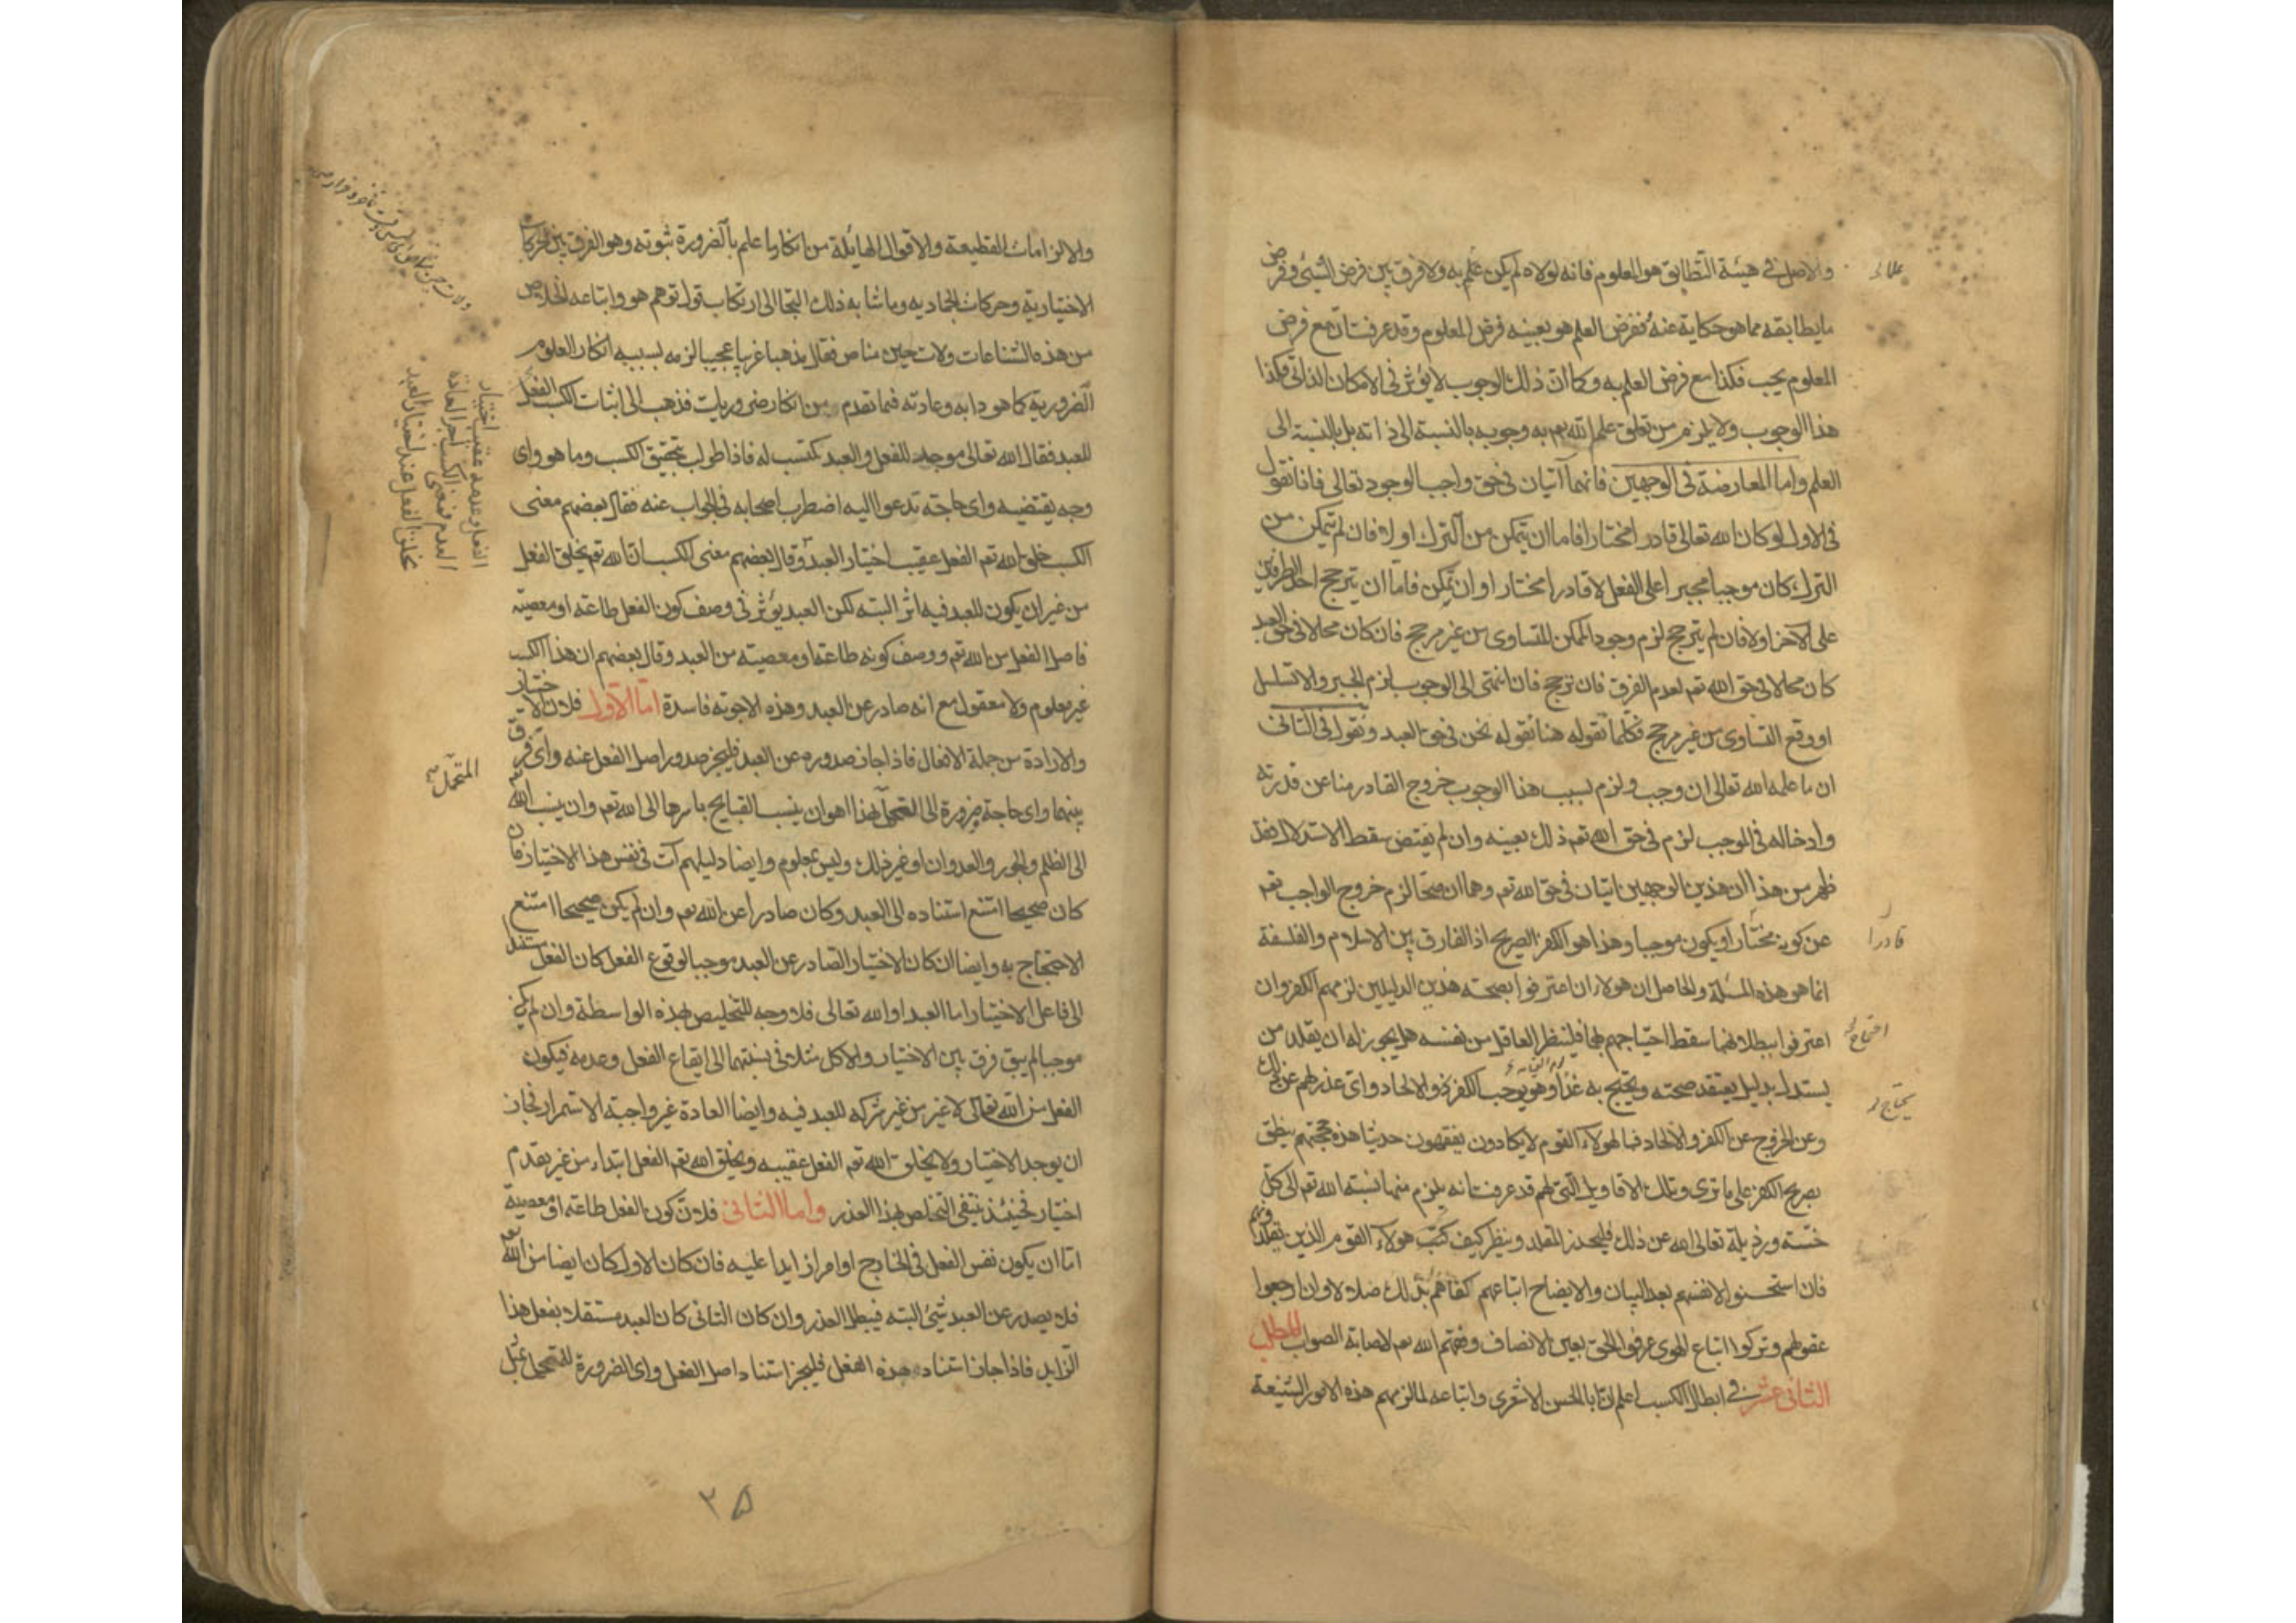 والاصل في هيئة التطابق هو المعلوم فانه لولاه لم يكن علم به ولا فرق بين فرض الشيئ وفرض
مايطابقه مما هو حكاية عنه ففرض العلم هو بعينه فرض المعلوم وقد عرفت ان مع فرض
المعلوم يجب فكذا مع فرض العلم به وكما ان ذلك الوجوب لا يؤثر في الامكان الذاتى فكذا
هذا الوجوب ولا يلزم من تعلق علم الله تعم به وجوبه بالنسبة الى ذاته بل بالنسبة الى
العلم واما المعارضة فى الوجهين فانهما آتيان فى حق واجب الوجود تعالى فانا نقول
فى الاول لو كان الله تعالى قادرا مختارا فاما ان يتمكن من الترك او لا فان لم يتمكن من
الترك كان موجبا مجبرا على الفعل لا قادرا مختارا وان تمكن فاما ان يترجح احد الطرفين
على الآخر اولا فان لم يترجح لزم وجود الممكن المتساوى من غير مرجح فان كان محالا فى حق العبد
كان محالا فى حق الله تعم لعدم الفرق فان ترجح فان انتهى الى الوجوب لزم الجبر والا تسلسل
او وقع التساوى من غير مرجح فكلما تقوله هنا نقوله نحن فى حق العبد ونقول فى الثانى
ان ما علمه الله تعالى ان وجب ولزم بسبب هذا الوجوب خروج القادر منا عن قدرته
وادخاله فى الموجب لزم فى حق الله تعم ذلك بعينه وان لم يقتض سقط الاستدلال فقد
ظهر من هذا ان هذين الوجهين اتيان فى حق الله تعم وهما ان صحا لزم خروج الواجب تعم
عن كونه مختارا ويكون موجبا وهذا هو الكفر الصريح اذ الفارق بين الاسلام والفلسفة
قادرا
انما هو هذه المسئلة والحاصل ان هولاء ان اعترفوا بصحته هذين الدليلين لزمهم الكفر وان
اعترفوا ببطلانهما سقط احتياجهم بهما فلينظر العاقل من نفسه هل يجوز له ان يقلد من
يستدل بدليل يعتقد صحته ويحتج به غدا وهو يوجب الكفر والالحاد واى عذر لهم عن ذلك
وعن الخروج عن الكفر والالحاد فما لهولاء القوم لا يكادون يفقهون حديثا هذه حجتهم ينطق
بصريح الكفر على ما ترى وتلك الاقاويل التى لهم قد عرفت انه يلزم منها نسبة الله تعم الى كل
خسته ورذيلة تعالى الله عن ذلك فليحذر المقلد وينظر كيف كتب هولاء القوم الذين تقلدهم
فان استحسنوا لانفسهم بعد البيان والايضاح اتباعهم كفاهم بذلك ضلالا وان راجعوا
عقولهم وتركوا اتباع الهوى عرفوا الحق بعين الانصاف وفقهم الله تعم لاصابة الصواب المطلب
الثانى عشر في ابطال الكسب اعلم ان ابا الحسن الاشعرى واتباعه لما لزمهم هذه الامور الشنيعة
والالزامات الفظيعة والاقوال الهائلة من انكار ما علم بالضرورة ثبوته وهو الفرق بين الحركات
الاختيارية وحركات الجمادية وما شابه ذلك التجا الى ارتكاب قول توهم هو واتباعه الخلاص
من هذه الشناعات ولات حين مناص فقال مذهبا غريبا عجيبا لزمه بسببه انكار العلوم
الضرورية كما هو دابه وعادته فيما تقدم من انكار ضروريات فذهب الى اثبات الكسب الفعل
للعبد فقال الله تعالى موجد للفعل والعبد مكتسب له فاذا طولب بتحقيق الكسب وما هو واى
وجه يقتضيه واى حاجة تدعوا اليه اضطرب اصحابه فى الجواب عنه فقال بعضهم معنى
الكسب خلق الله تعم الفعل عقيب اختيار العبد وقال بعضهم معنى الكسب ان الله تعم يخلق الفعل
الفعل وعدمه عقيب اختيار
العدم فمعنى الكسب اجراء العادة
بخلق الفعل عند اختيار العبد
من غير ان يكون للعبد فيه اثر البتة لكن العبد يؤثر فى وصف كون الفعل طاعة او معصية
فاصل الفعل من الله تعم ووصف كونه طاعة او معصيته من العبد وقال بعضهم ان هذا الكسب
غير معلوم ولا معقول مع انه صادر عن العبد وهذه الاجوبة فاسدة اما الاول فلان الاختيار
والارادة من جملة الافعال فاذا جاز صدوره عن العبد فليجز صدور اصل الفعل عنه واى فرق
بينهما واى حاجة وضرورة الى التمحل بهذا هو ان ينسب القبايح باسرها الى الله تعم وان ينسب الله تعم
المتمحل
الى الظلم والجور والعدوان او غير ذلك وليس بمعلوم وايضا دليلهم آت فى نفس هذا الاختيار فان
كان صحيحا امتنع استناده الى العبد وكان صادرا عن الله تعم وان لم يكن صحيحا امتنع
الاحتجاج به وايضا ان كان الاختيار الصادر عن العبد موجبا لوقوع الفعل كان الفعل مستندا
الى فاعل الاختيار اما العبد او الله تعالى فلا وجه للتخليص بهذه الواسطة وان لم يكن
موجبا لم يبق فرق بين الاختيار والاكل مثلا فى نسبتهما الى ايقاع الفعل وعدمه فيكون
الفعل من الله تعالى لا غير من غير شركه للعبد فيه وايضا العادة غير واجبة الاستمرار فجاز
ان يوجد الاختيار ولا يخلق الله تعم الفعل عقيبه ويخلق الله تعم الفعل ابتداء من غير تقدم
اختيار فحينئذ ينتفى التخلص بهذا العذر واما الثانى فلان كون الفعل طاعة او معصية
اما ان يكون نفس الفعل فى الخارج او امر زايدا عليه فان كان الاول كان ايضا من الله تعم
فلا يصدر عن العبد شيئ البتة فيبطل العذر وان كان الثانى كان العبد مستقلا بفعل هذا
الزايد فاذا جاز استناد هذه الفعل فليجز استناد اصل الفعل واى الضرورة للتمحل بمثل
٣٥